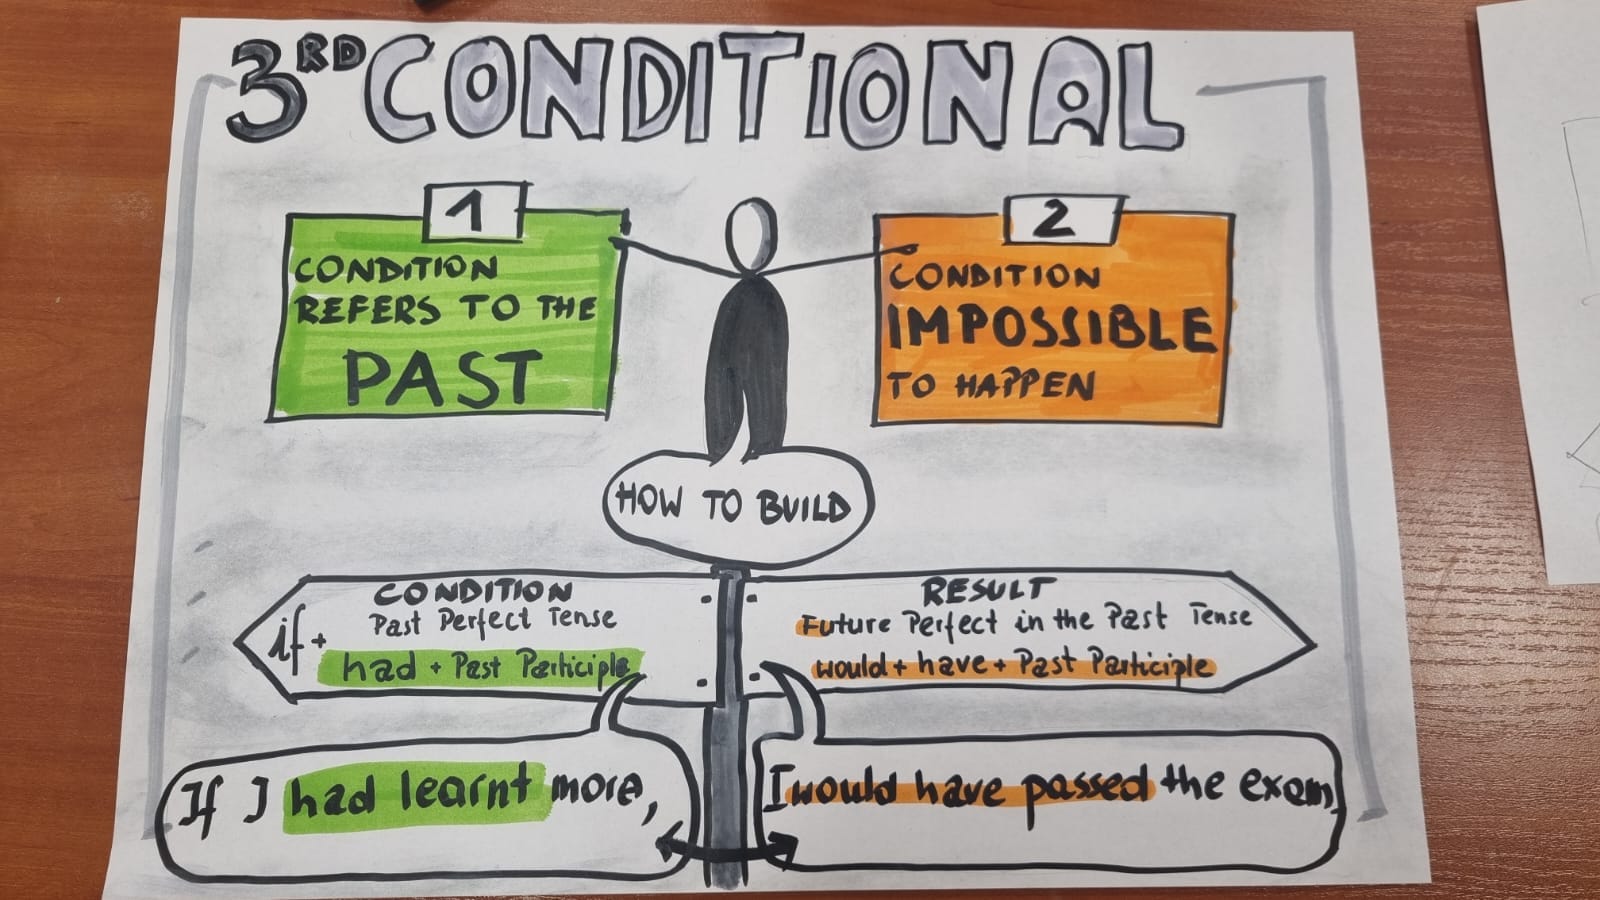 3RD CONDITIONAL
1
CONDITION
REFERS TO THE
PAST
2
CONDITION
IMPOSSIBLE
TO HAPPEN
HOW TO BUILD
CONDITION
Past Perfect Tense
if +
had + Past Participle
RESULT
Future Perfect in the Past Tense
would + have + Past Participle
If I had learnt more,
I would have passed the exam